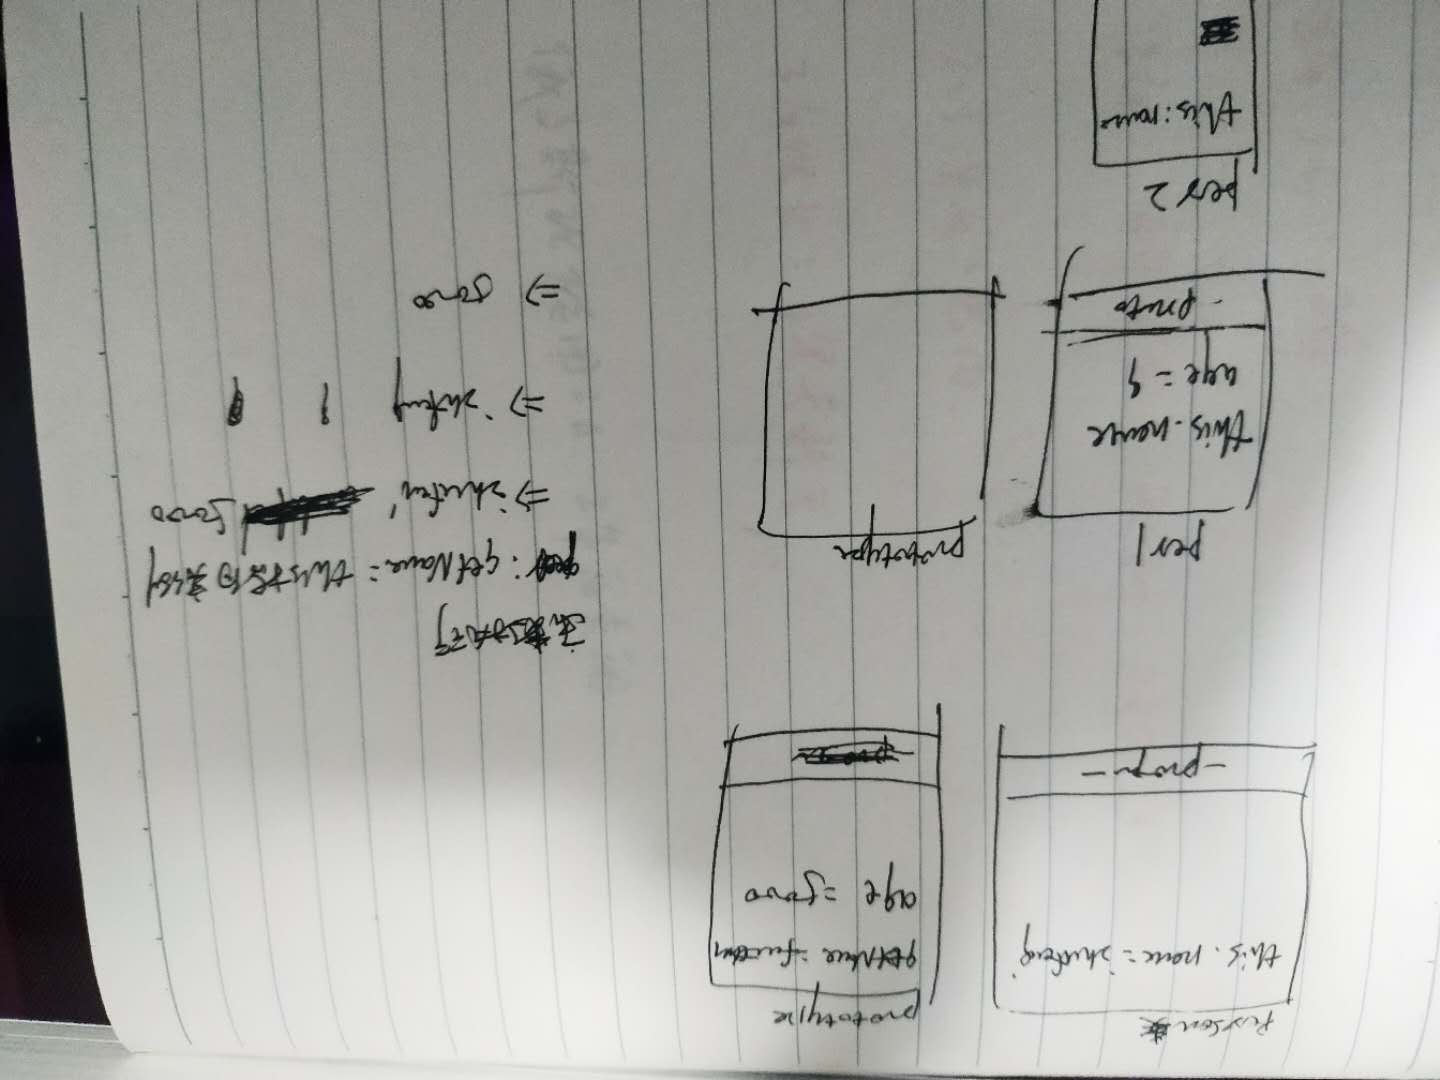 Person类
this.name = 'shufeng'
-proto-
prototype
getName = function
age = 5000
per1
this.name
age = 9
-proto
prototype
per 2
this.name
getName = this指向实例
=> 'shufeng' 5000
=> 'shufeng'
=> 5000